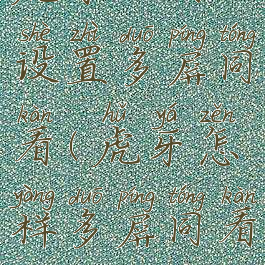 shè zhì duō píng tóng
设置多屏同
kàn hǔ yá zěn
看(虎牙怎
yàng duō píng tóng kàn
样多屏同看